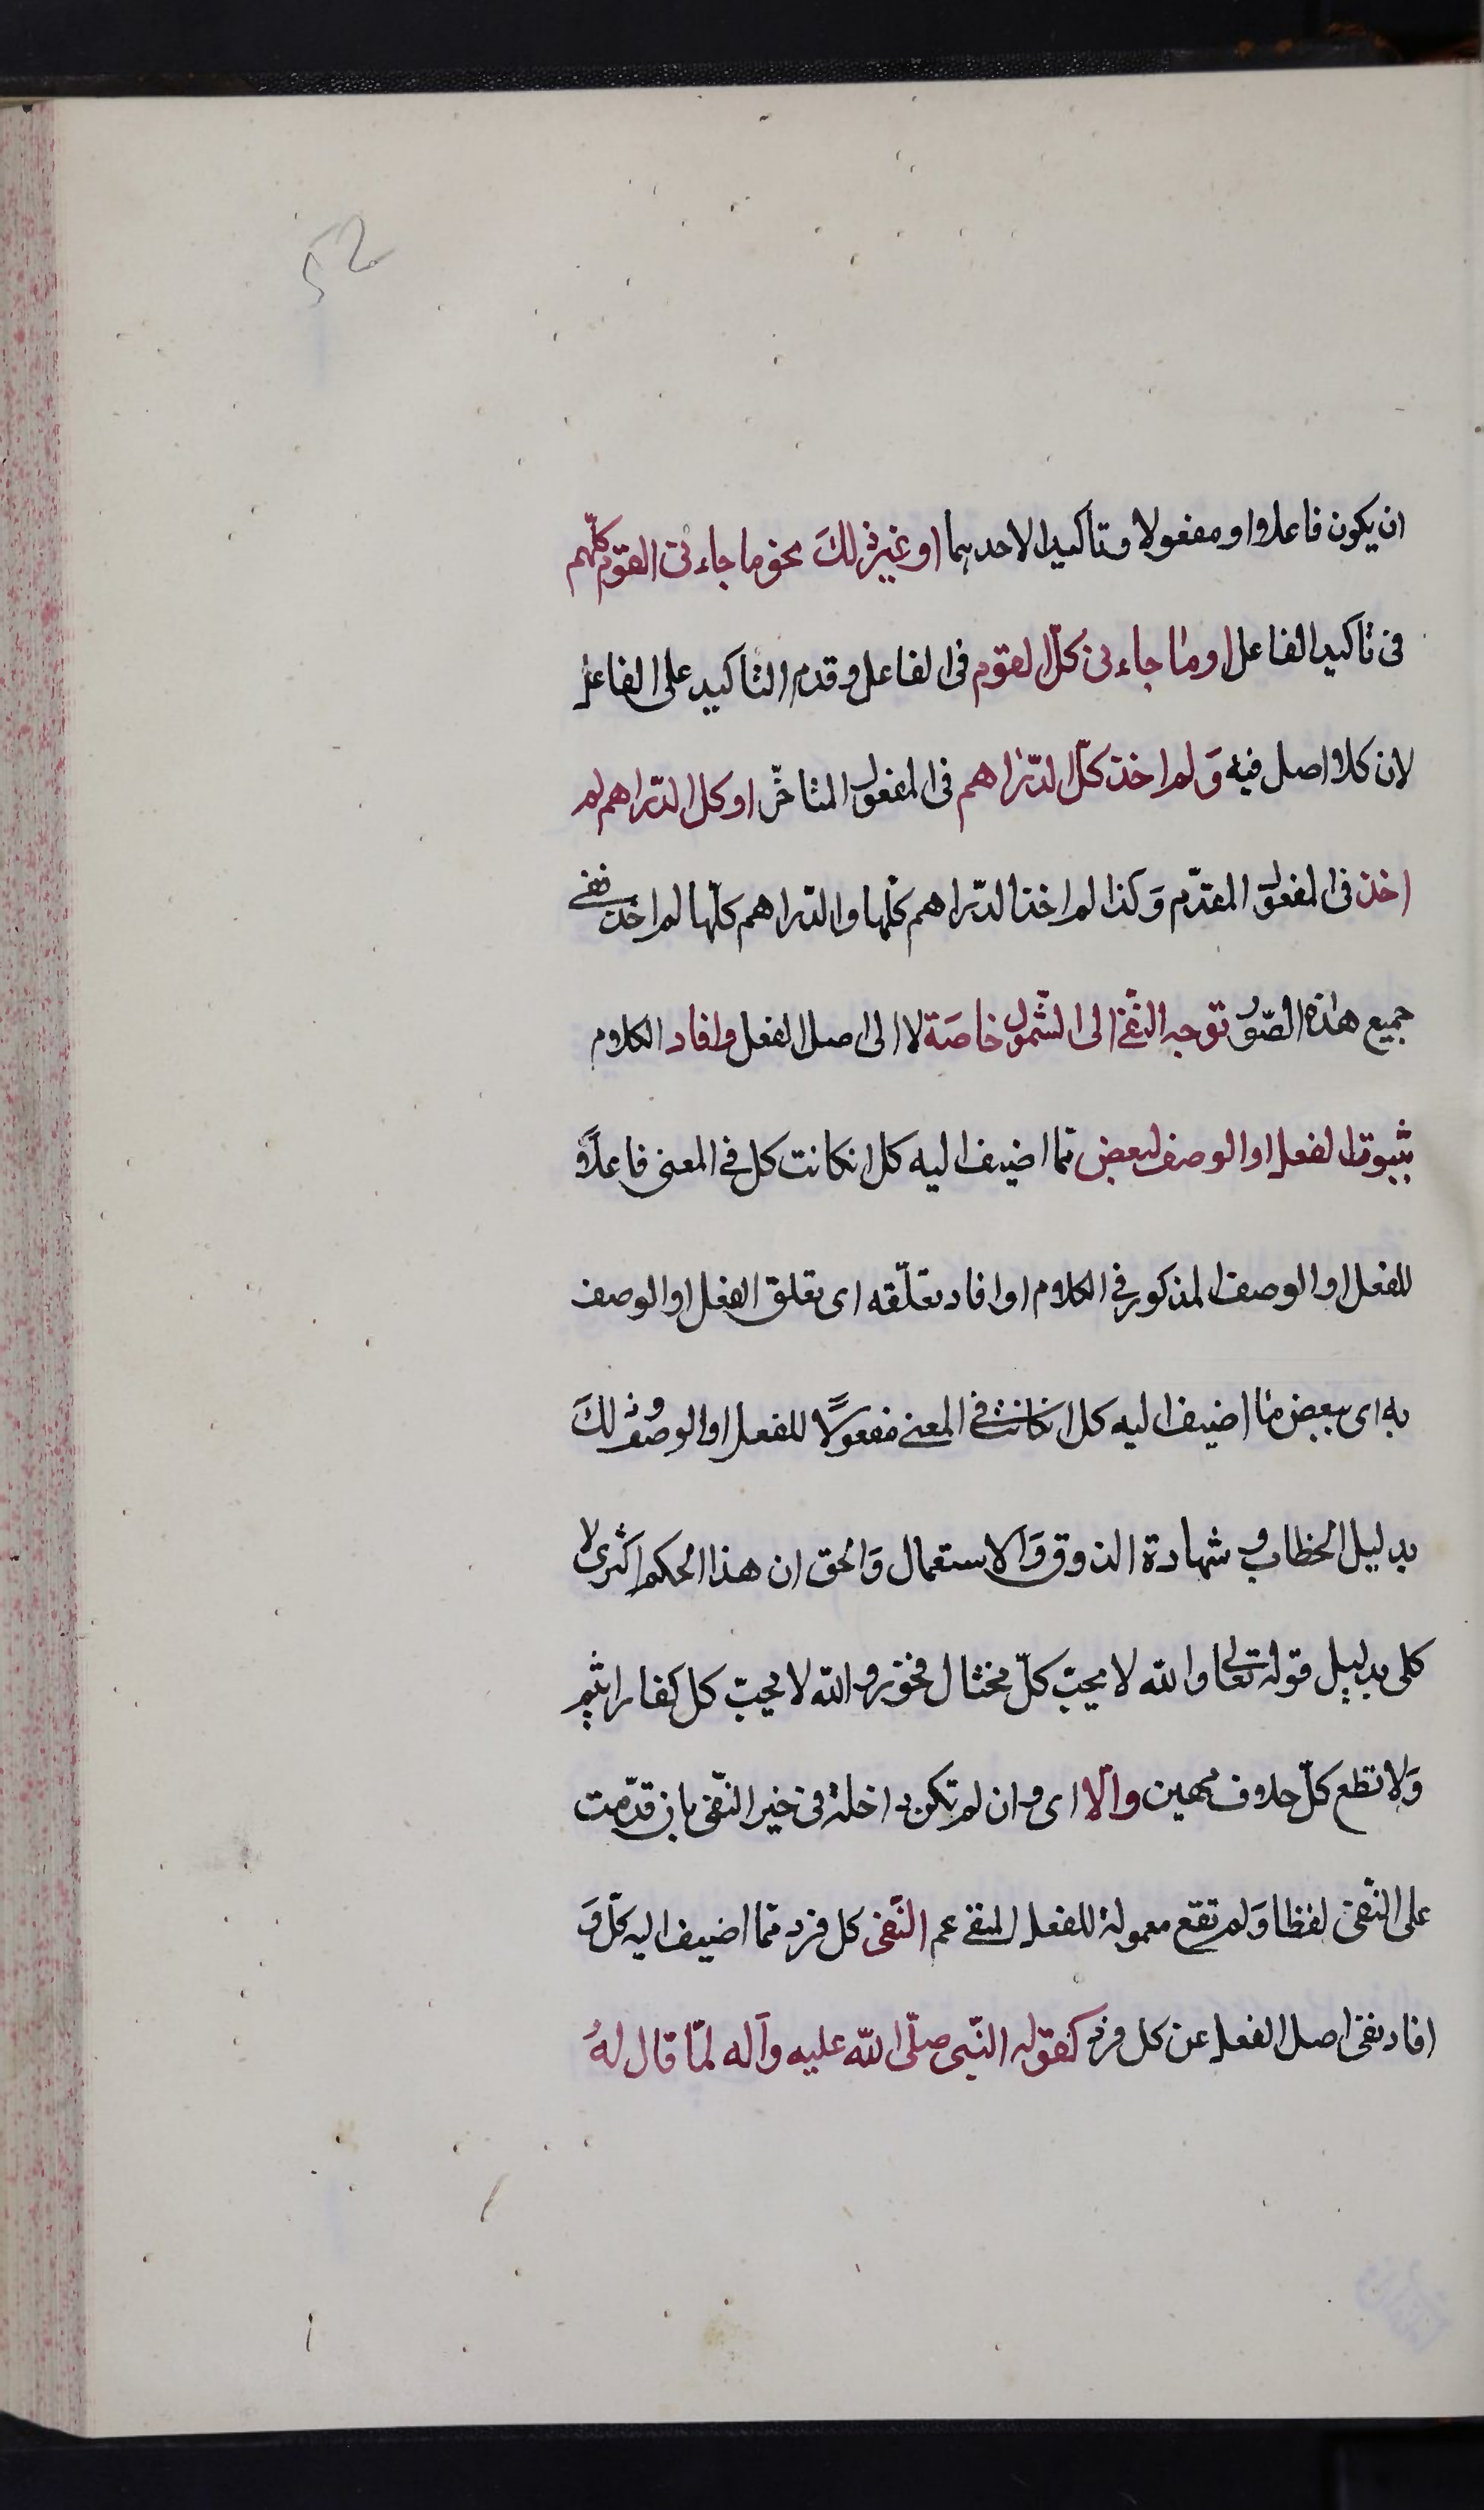 52
ان يكون فاعلا او مفعولا و تاكيدا لاحدهما او غير ذلكَ نحو ما جاءنى القوم كلّهم
فى تاكيد الفاعل او ما جاءنى كلّ القوم فى الفاعل و قدم التاكيد على الفاعل
لان كلا اصل فيه وَ لم اخذ كلّ الدّراهم فى المفعول المتاخّر او كل الدّراهم لم
اخذ فى المفعول المقدّم وَ كذا لم اخذ الدّراهم كلّها و الدّراهم كلّها لم اخذ ففى
جميع هذه الصّور توجه النّفى الى الشّمول خاصَة لا الى اصل الفعل و افاد الكلام
ثبوت الفعل او الوصف لبعض ممّا اضيف اليه كل ان كانت كل فى المعنى فاعلاً
للفعل او الوصف المذكور فى الكلام او افاد تعلّقه اى تعلق الفعل او الوصف
به اى ببعض ممّا اضيف اليه كل ان كانت فى المعنى مفعولاً للفعل او الوصف و ذلكَ
بدليل الخطاب و شهادة الذوق وَ الاستعمال وَ الحق ان هذا الحكم اكثرى لا
كلى بدليل قوله تعالى و الله لا يحبّ كلّ مختال فخور و الله لا يحبّ كل كفار اثيم
وَ لا تطع كلّ حلاف مهين و الّا اى و ان لم تكن داخلة فى حيز النّفى بان قدّمت
على النّفى لفظا وَ لم تقع معمولة للفعل المنفى عم النّفى كل فرد ممّا اضيف اليه كلّ وَ
افاد نفى اصل الفعل عن كل فرد كقول النّبى صلّى الله عليه و آله لمّا قال لهُ